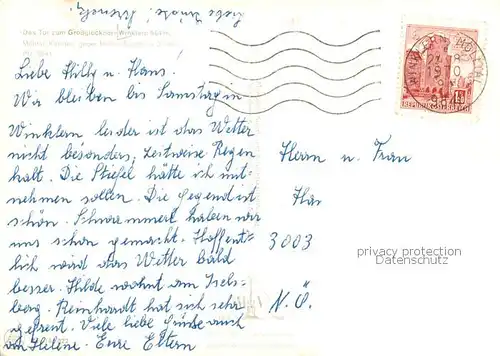 Liebe Grüße!
Das Tor zum Großglockner-Winklern 964 m
Liebe Hilly u. Hans!
Wir bleiben bis Samstag in
Winklern leider ist das Wetter
nicht besonders, Zeitweise Regen
kalt. Die Stiefel hätte ich mit-
nehmen sollen. Die Gegend ist
schön. Schwammerl haben wir
uns schon gemacht. Hoffent-
lich wird das Wetter bald
besser. Hilde wohnt am Isels-
berg. Reinhardt hat sich sehr
gefreut. Viele liebe Grüße auch
an Helene. Eure Eltern
REPUBLIK ÖSTERREICH
Herrn u. Frau
3003
N.Ö.
privacy protection
Datenschutz